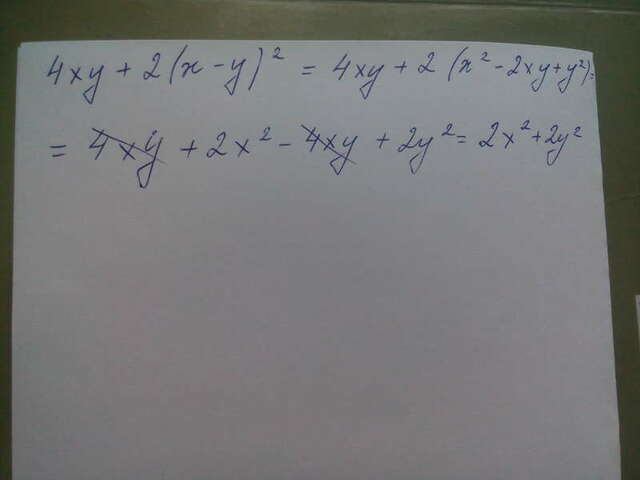 4xy + 2(x - y)² = 4xy + 2 (x² - 2xy + y²) =
= 4xy + 2x² - 4xy + 2y² = 2x² + 2y²